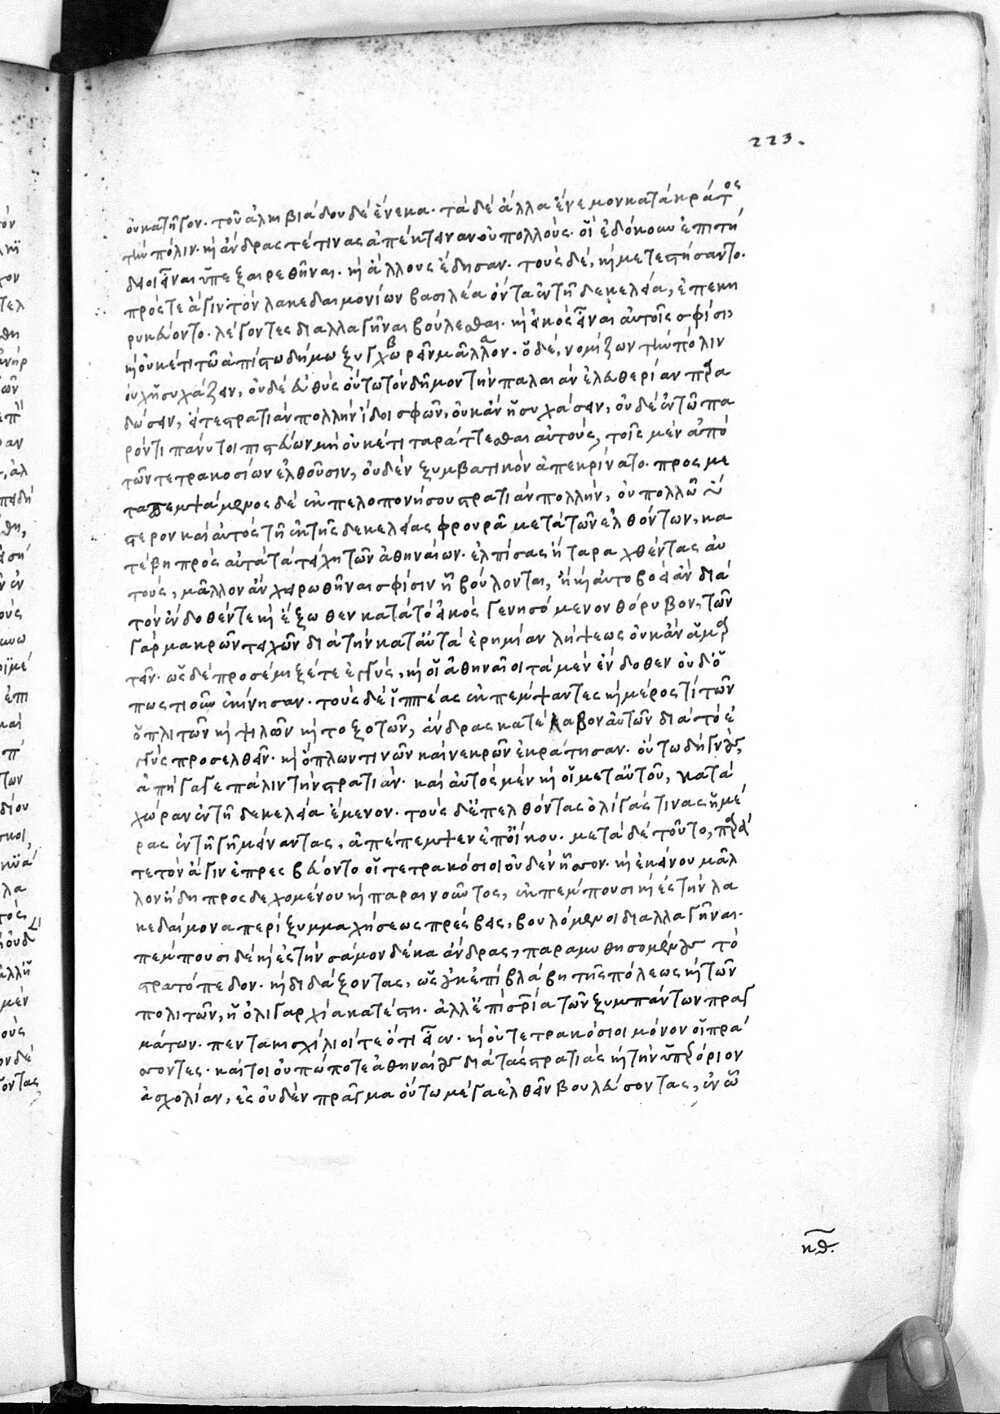 223.
οὐ κατῆγον· τοῦ ἀλκιβιάδου δὲ ἕνεκα· τὰ δὲ ἄλλα ἔνεμον κατὰ κράτος
τὴν πόλιν· καὶ ἄνδρας τέ τινας ἀπέκτειναν οὐ πολλούς· οἳ ἐδόκουν ἐπιτή
δειοι εἶναι ὑπεξαιρεθῆναι· καὶ ἄλλους ἔδησαν· τοὺς δὲ, καὶ μετεστήσαντο·
πρός τε ἄγιν τὸν λακεδαιμονίων βασιλέα ὄντα ἐν τῆ δεκελεία, ἐπεκη
ρυκεύοντο· λέγοντες διαλλαγῆναι βούλεσθαι· καὶ εἰκὸς εἶναι αὐτοῖς σφίσι,
καὶ οὐκέτι τῶ ἀπίστω δήμω ξυγχωρεῖν μᾶλλον· ὁ δὲ, νομίζων τὴν πόλιν
οὐχ ἡσυχάζειν, οὐδὲ εὐθὺς οὕτω τὸν δῆμον τὴν παλαιὰν ἐλευθερίαν παρα
δώσειν, εἴ τε στρατιὰν πολλὴν ἴδοι σφῶν, οὐκ ἂν ἡσυχάσειν, οὐδὲ ἐν τῶ πα
ρόντι πάνυ τοι πιστεύων μὴ οὐκέτι ταράττεσθαι αὐτούς, τοῖς μὲν ἀπὸ
τῶν τετρακοσίων ἐλθοῦσιν, οὐδὲν ξυμβατικὸν ἀπεκρίνατο· προσμε
ταπεμψάμενος δὲ ἐκ πελοπονήσου στρατιὰν πολλήν, οὐ πολλῶ ὕ
στερον καὶ αὐτὸς τῆ ἐκ τῆς δεκελείας φρουρᾶ μετὰ τῶν ἐλθόντων, κα
τέβη πρὸς αὐτὰ τὰ τείχη τῶν ἀθηναίων· ἐλπίσας ἢ ταραχθέντας αὐ
τούς, μᾶλλον ἂν χειρωθῆναι σφίσιν ἧ βούλονται, ἢ καὶ αὐτοβοεὶ ἂν διὰ
τὸν ἔνδοθέν τε καὶ ἔξωθεν κατὰ τὸ εἰκὸς γενησόμενον θόρυβον, τῶν
γὰρ μακρῶν τειχῶν διὰ τὴν κατ' αὐτὰ ἐρημίαν λήψεως οὐκ ἂν ἁμαρ
τεῖν· ὡς δὲ προσέμιξέ τε ἐγγύς, καὶ οἱ ἀθηναῖοι τὰ μὲν ἔνδοθεν οὐδ' ὁ
πωστιοῦν ἐκίνησαν· τοὺς δὲ ἱππέας ἐκπέμψαντες καὶ μέρος τὶ τῶν
ὁπλιτῶν καὶ ψιλῶν καὶ τοξοτῶν, ἄνδρας κατέλαβον αὐτῶν διὰ τὸ ἐ
γγὺς προσελθεῖν· καὶ ὅπλων τινῶν καὶ νεκρῶν ἐκράτησαν· οὕτω δὴ γνοὺς,
ἀπήγαγε πάλιν τὴν στρατιάν· καὶ αὐτὸς μὲν καὶ οἱ μετ' αὐτοῦ, κατὰ
χώραν ἐν τῆ δεκελεία ἔμενον· τοὺς δ' ἐπελθόντας ὀλίγας τινὰς ἡμέ
ρας ἐν τῆ γῆ μείναντας, ἀπέπεμψεν ἐπ' οἴκου· μετὰ δὲ τοῦτο, παρά
τε τὸν ἄγιν ἐπρεσβεύοντο οἱ τετρακόσιοι οὐδὲν ἧσσον· καὶ ἐκείνου μᾶλ
λον ἤδη προσδεχομένου καὶ παραινοῦντος, ἐκπέμπουσι καὶ ἐς τὴν λα
κεδαίμονα περὶ ξυμμαχήσεως πρέσβεις, βουλόμενοι διαλλαγῆναι·
πέμπουσι δὲ καὶ ἐς τὴν σάμον δέκα ἄνδρας, παραμυθησομένους τὸ
στρατόπεδον· καὶ διδάξοντας, ὡς οὐκ ἐπὶ βλάβη τῆς πόλεως καὶ τῶν
πολιτῶν, ἡ ὀλιγαρχία κατέστη· ἀλλ' ἐπὶ σωτηρία τῶν ξυμπάντων πραγ
μάτων· πεντακισχίλιοί τε ὅτι εἶεν· καὶ οὐ τετρακόσιοι μόνον οἱ πρά
σσοντες· καίτοι οὐπώποτε ἀθηναίους διὰ τὰς στρατιὰς καὶ τὴν ὑπερόριον
ἀσχολίαν, ἐς οὐδὲν πρᾶγμα οὕτω μέγα ἐλθεῖν βουλεύσοντας, ἐν ὧ
κθ.